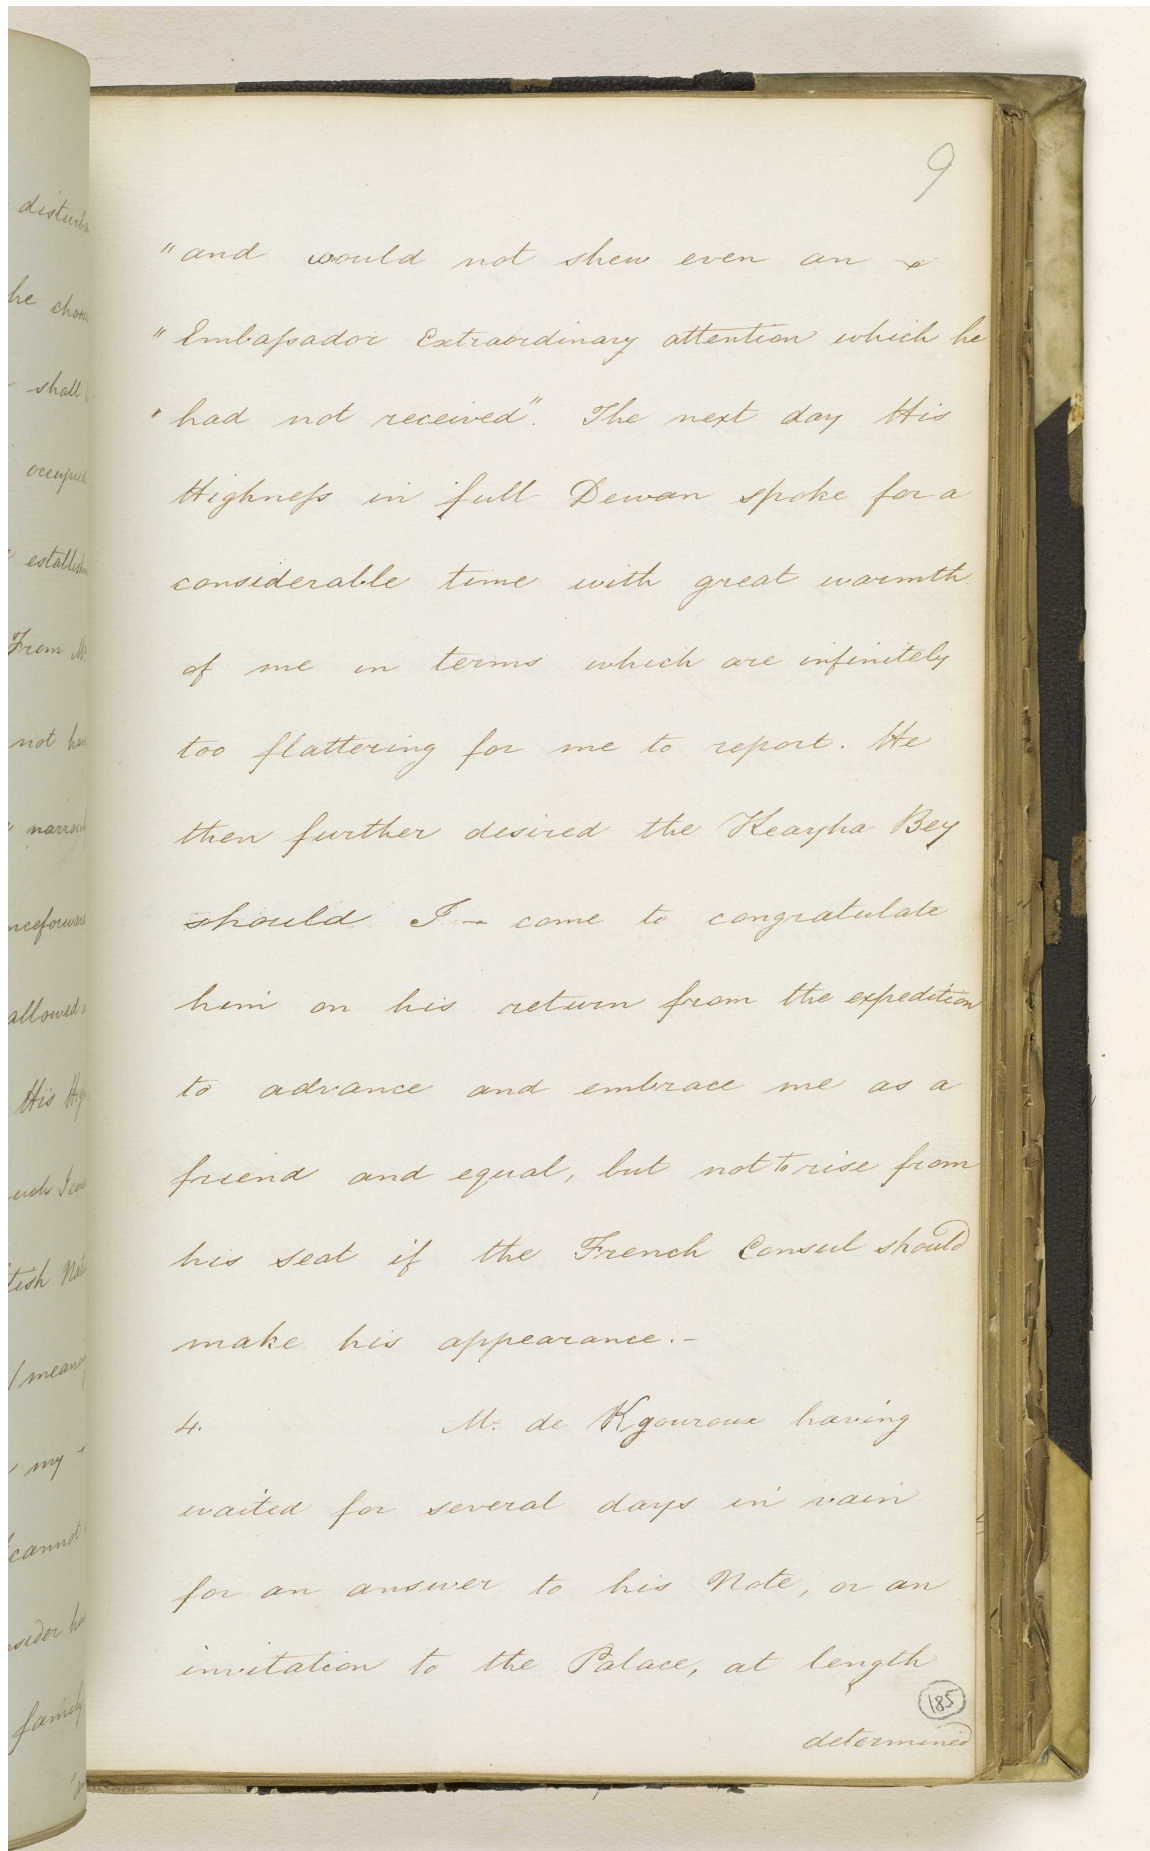 9
"and would not shew even an
"Embaſsador Extraordinary attention which he
"had not received". The next day His
Highneſs in full Dewan spoke for a
considerable time with great warmth
of me in terms which are infinitely
too flattering for me to report. He
then further desired the Keayha Bey
should I - come to congratulate
him on his return from the expedition
to advance and embrace me as a
friend and equal, but not to rise from
his seat if the French Consul should
make his appearance.-
4. M. de Kgouroux having
waited for several days in vain
for an answer to his Note, or an
invitation to the Palace, at length
185
determined